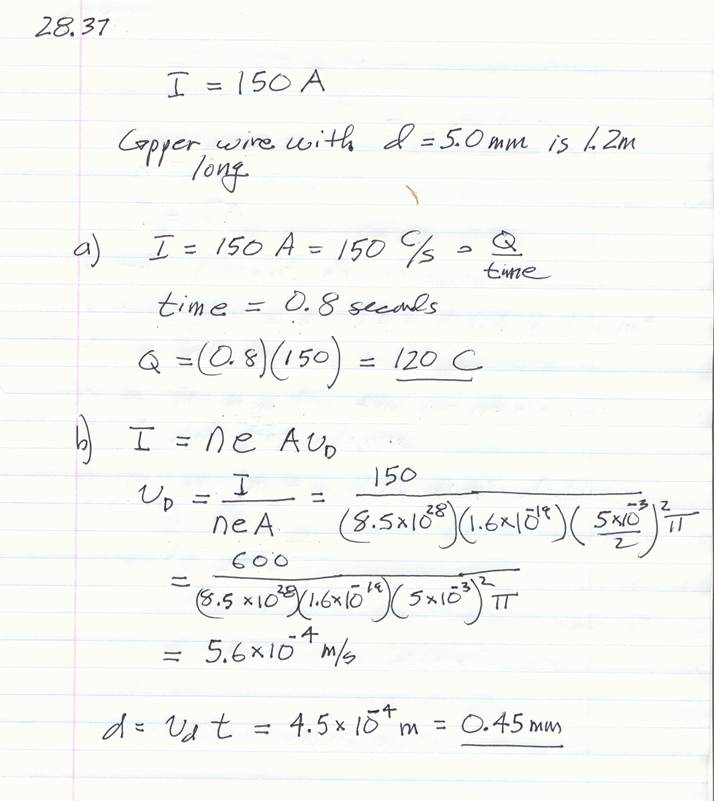 28.37
I = 150 A
Copper wire with d = 5.0 mm is 1.2m
long
a) I = 150 A = 150 C/s = Q/time
time = 0.8 seconds
Q = (0.8)(150) = 120 C
b) I = neAv_D
v_D = I/neA = 150/(8.5×10^28)(1.6×10^-19)(5×10^-3/2)^2 π
= 600/(8.5×10^28)(1.6×10^-19)(5×10^-3)^2 π
= 5.6×10^-4 m/s
d = v_d t = 4.5×10^-4 m = 0.45 mm